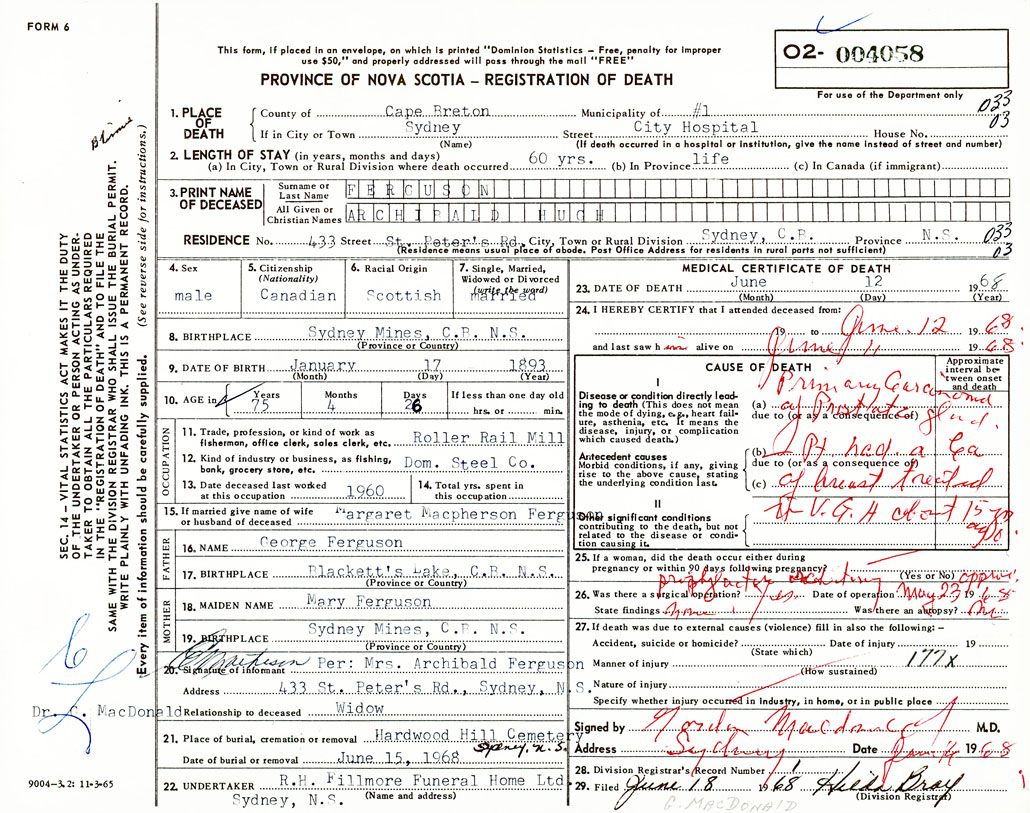 FORM 6
This form, if placed in an envelope, on which is printed "Dominion Statistics – Free, penalty for improper
use $50," and properly addressed will pass through the mail "FREE"
PROVINCE OF NOVA SCOTIA – REGISTRATION OF DEATH
O2- 004058
For use of the Department only
SEC. 14 – VITAL STATISTICS ACT MAKES IT THE DUTY
OF THE UNDERTAKER OR PERSON ACTING AS UNDER-
TAKER TO OBTAIN ALL THE PARTICULARS REQUIRED
IN THE "REGISTRATION OF DEATH" AND TO FILE THE
SAME WITH THE DIVISION REGISTRAR WHO SHALL ISSUE THE BURIAL PERMIT.
WRITE PLAINLY WITH UNFADING INK. THIS IS A PERMANENT RECORD.
Every item of information should be carefully supplied. (See reverse side for instructions.)
1. PLACE OF DEATH
County of Cape Breton Municipality of #1 033
If in City or Town Sydney Street City Hospital House No. 03
(Name) (If death occurred in a hospital or institution, give the name instead of street and number)
2. LENGTH OF STAY (in years, months and days)
(a) In City, Town or Rural Division where death occurred 60 yrs. (b) In Province life (c) In Canada (if immigrant)
3. PRINT NAME OF DECEASED
Surname or Last Name FERGUSON
All Given or Christian Names ARCHIBALD HUGH
RESIDENCE No. 433 Street St. Peter's Rd. City, Town or Rural Division Sydney, C.B. Province N.S. 033
(Residence means usual place of abode. Post Office Address for residents in rural parts not sufficient) 03
4. Sex
male
5. Citizenship (Nationality)
Canadian
6. Racial Origin
Scottish
7. Single, Married, Widowed or Divorced (write the word)
married
8. BIRTHPLACE Sydney Mines, C.B. N.S.
(Province or Country)
9. DATE OF BIRTH January 17 1893
(Month) (Day) (Year)
10. AGE in Years Months Days If less than one day old
75 4 26 hrs. or min.
OCCUPATION
11. Trade, profession, or kind of work as
fisherman, office clerk, sales clerk, etc. Roller Rail Mill
12. Kind of industry or business, as fishing,
bank, grocery store, etc. Dom. Steel Co.
13. Date deceased last worked
at this occupation 1960
14. Total yrs. spent in
this occupation
15. If married give name of wife
or husband of deceased Margaret Macpherson Ferguson
FATHER
16. NAME George Ferguson
17. BIRTHPLACE Blackett's Lake, C.B. N.S.
(Province or Country)
MOTHER
18. MAIDEN NAME Mary Ferguson
19. BIRTHPLACE Sydney Mines, C.B. N.S.
(Province or Country)
20. Signature of informant Per: Mrs. Archibald Ferguson
Address 433 St. Peter's Rd., Sydney, N.S.
Dr. G. MacDonald
Relationship to deceased Widow
21. Place of burial, cremation or removal Hardwood Hill Cemetery
Sydney, N.S.
Date of burial or removal June 15, 1968
22. UNDERTAKER R.H. Fillmore Funeral Home Ltd.
Sydney, N.S. (Name and address)
9004-3.2: 11-3-65
MEDICAL CERTIFICATE OF DEATH
23. DATE OF DEATH June 12 1968
(Month) (Day) (Year)
24. I HEREBY CERTIFY that I attended deceased from:
19 to June 12 1968
and last saw him alive on June 11 1968
CAUSE OF DEATH
Approximate interval between onset and death
I
Disease or condition directly lead-
ing to death (This does not mean
the mode of dying, e.g., heart fail-
ure, asthenia, etc. It means the
disease, injury, or complication
which caused death.)
(a) Primary Carcinoma
due to (or as a consequence of)
of Prostate gland.
Antecedent causes
Morbid conditions, if any, giving
rise to the above cause, stating
the underlying condition last.
(b) Pt had a Ca
due to (or as a consequence of)
(c) of breast treated
II
Other significant conditions
contributing to the death, but not
related to the disease or condi-
tion causing it.
at V.G.H about 15 yr
ago.
25. If a woman, did the death occur either during
pregnancy or within 90 days following pregnancy?
(Yes or No)
26. Was there a surgical operation? yes Date of operation May 23 1968
State findings none Was there an autopsy? No
27. If death was due to external causes (violence) fill in also the following:-
Accident, suicide or homicide? Date of injury 19
(State which)
Manner of injury 177X
(How sustained)
Nature of injury
Specify whether injury occurred in industry, in home, or in public place
Signed by Gordon Macdonald M.D.
Address Sydney Date June 14 1968
28. Division Registrar's Record Number 1
29. Filed June 18 1968 Hilda Bray
(Division Registrar)
G. MACDONALD